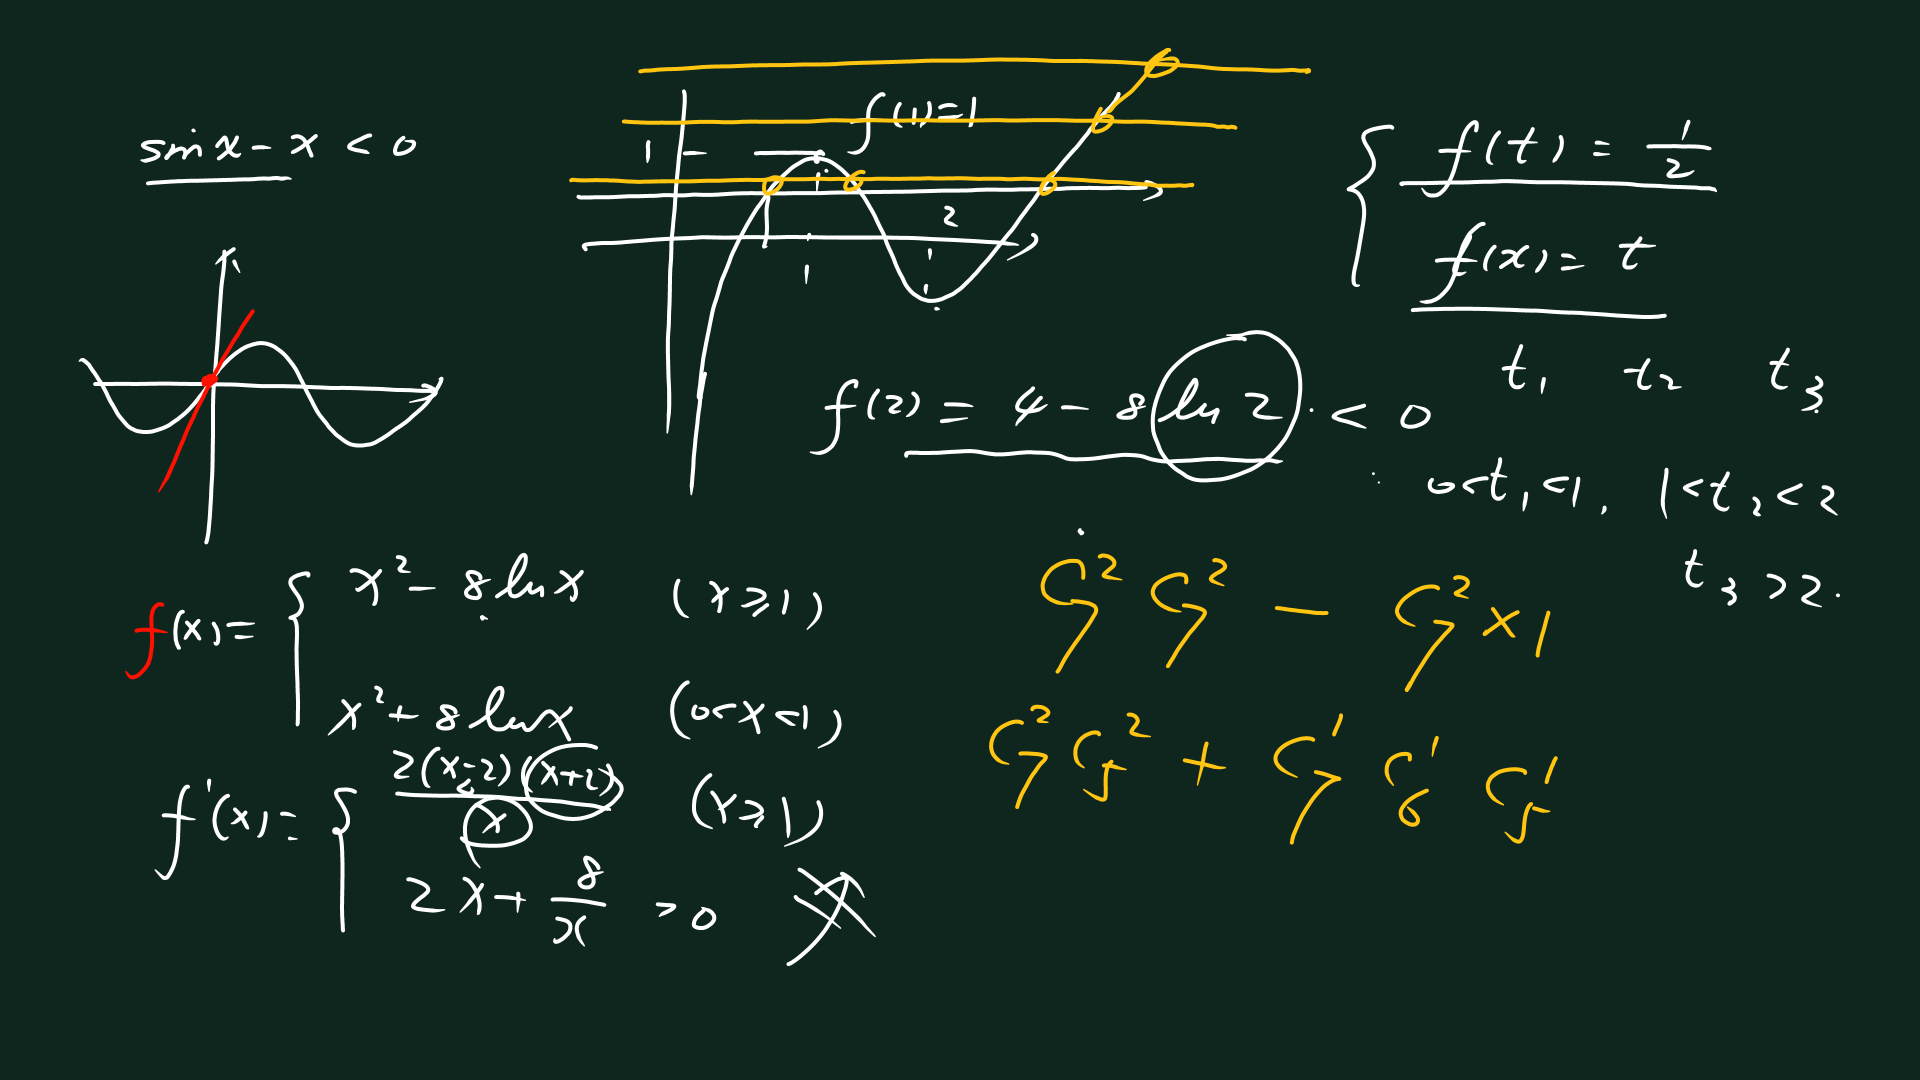 sin x - x < 0
f(1)=1
1
1
2
f(t) = 1/2
f(x) = t
t₁ t₂ t₃
f(2) = 4 - 8 ln 2 < 0
0<t₁<1, 1<t₂<2
t₃>2.
f(x) = { x² - 8 ln x (x ⩾ 1)
x² + 8 ln x (0<x<1)
f'(x) = { 2(x-2)(x+2)/x (x ⩾ 1)
2x + 8/x > 0
C₇² C₇² - C₇² × 1
C₇² C₅² + C₇¹ C₆¹ C₅¹